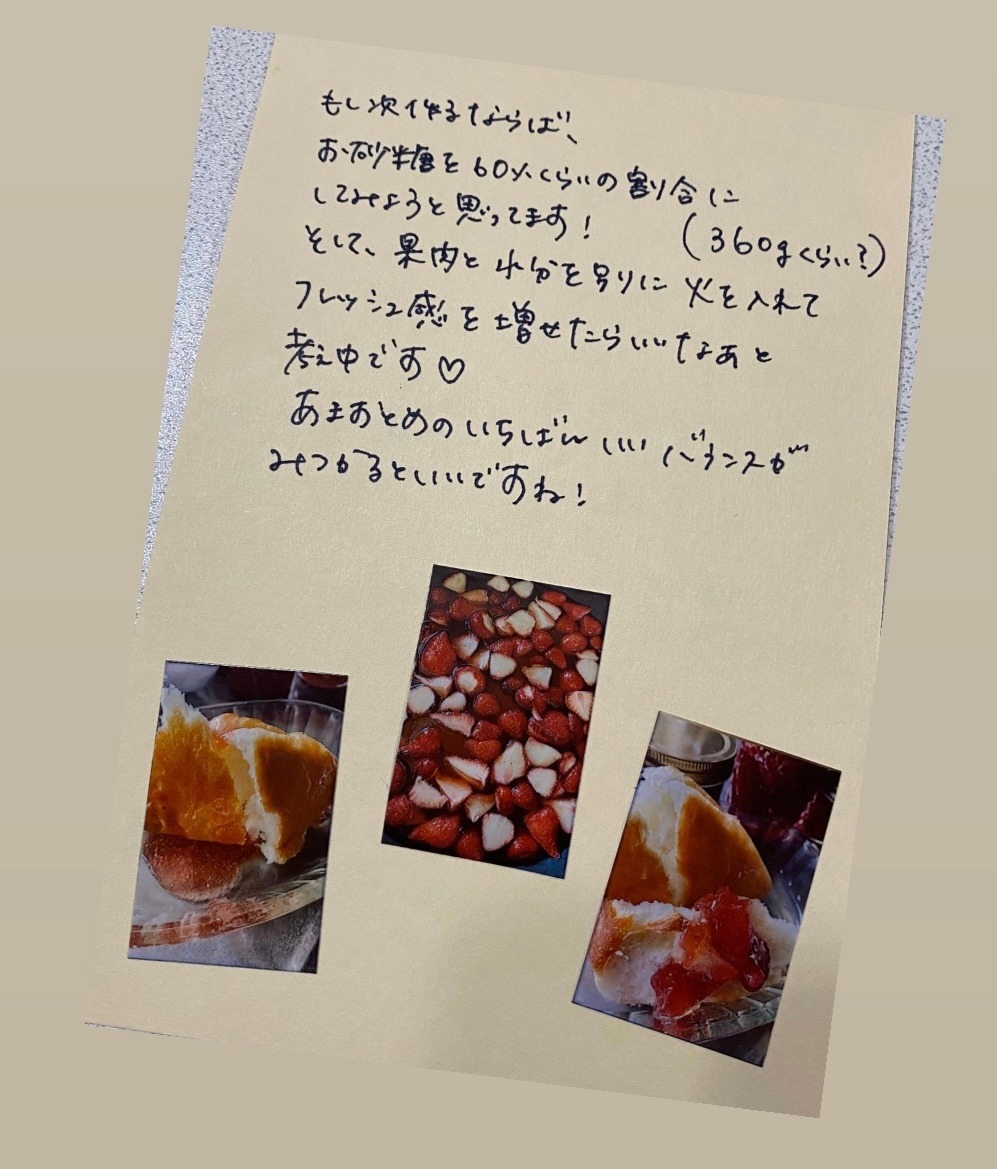 もし次作るならば、
お砂糖を60%くらいの割合に
してみようと思ってます!
(360gくらい?)
そして、果肉と水分を別りに火を入れて
フレッシュ感を増せたらいいなあと
考え中です♡
あまおとめのいちばんいいバランスが
みつかるといいですね!